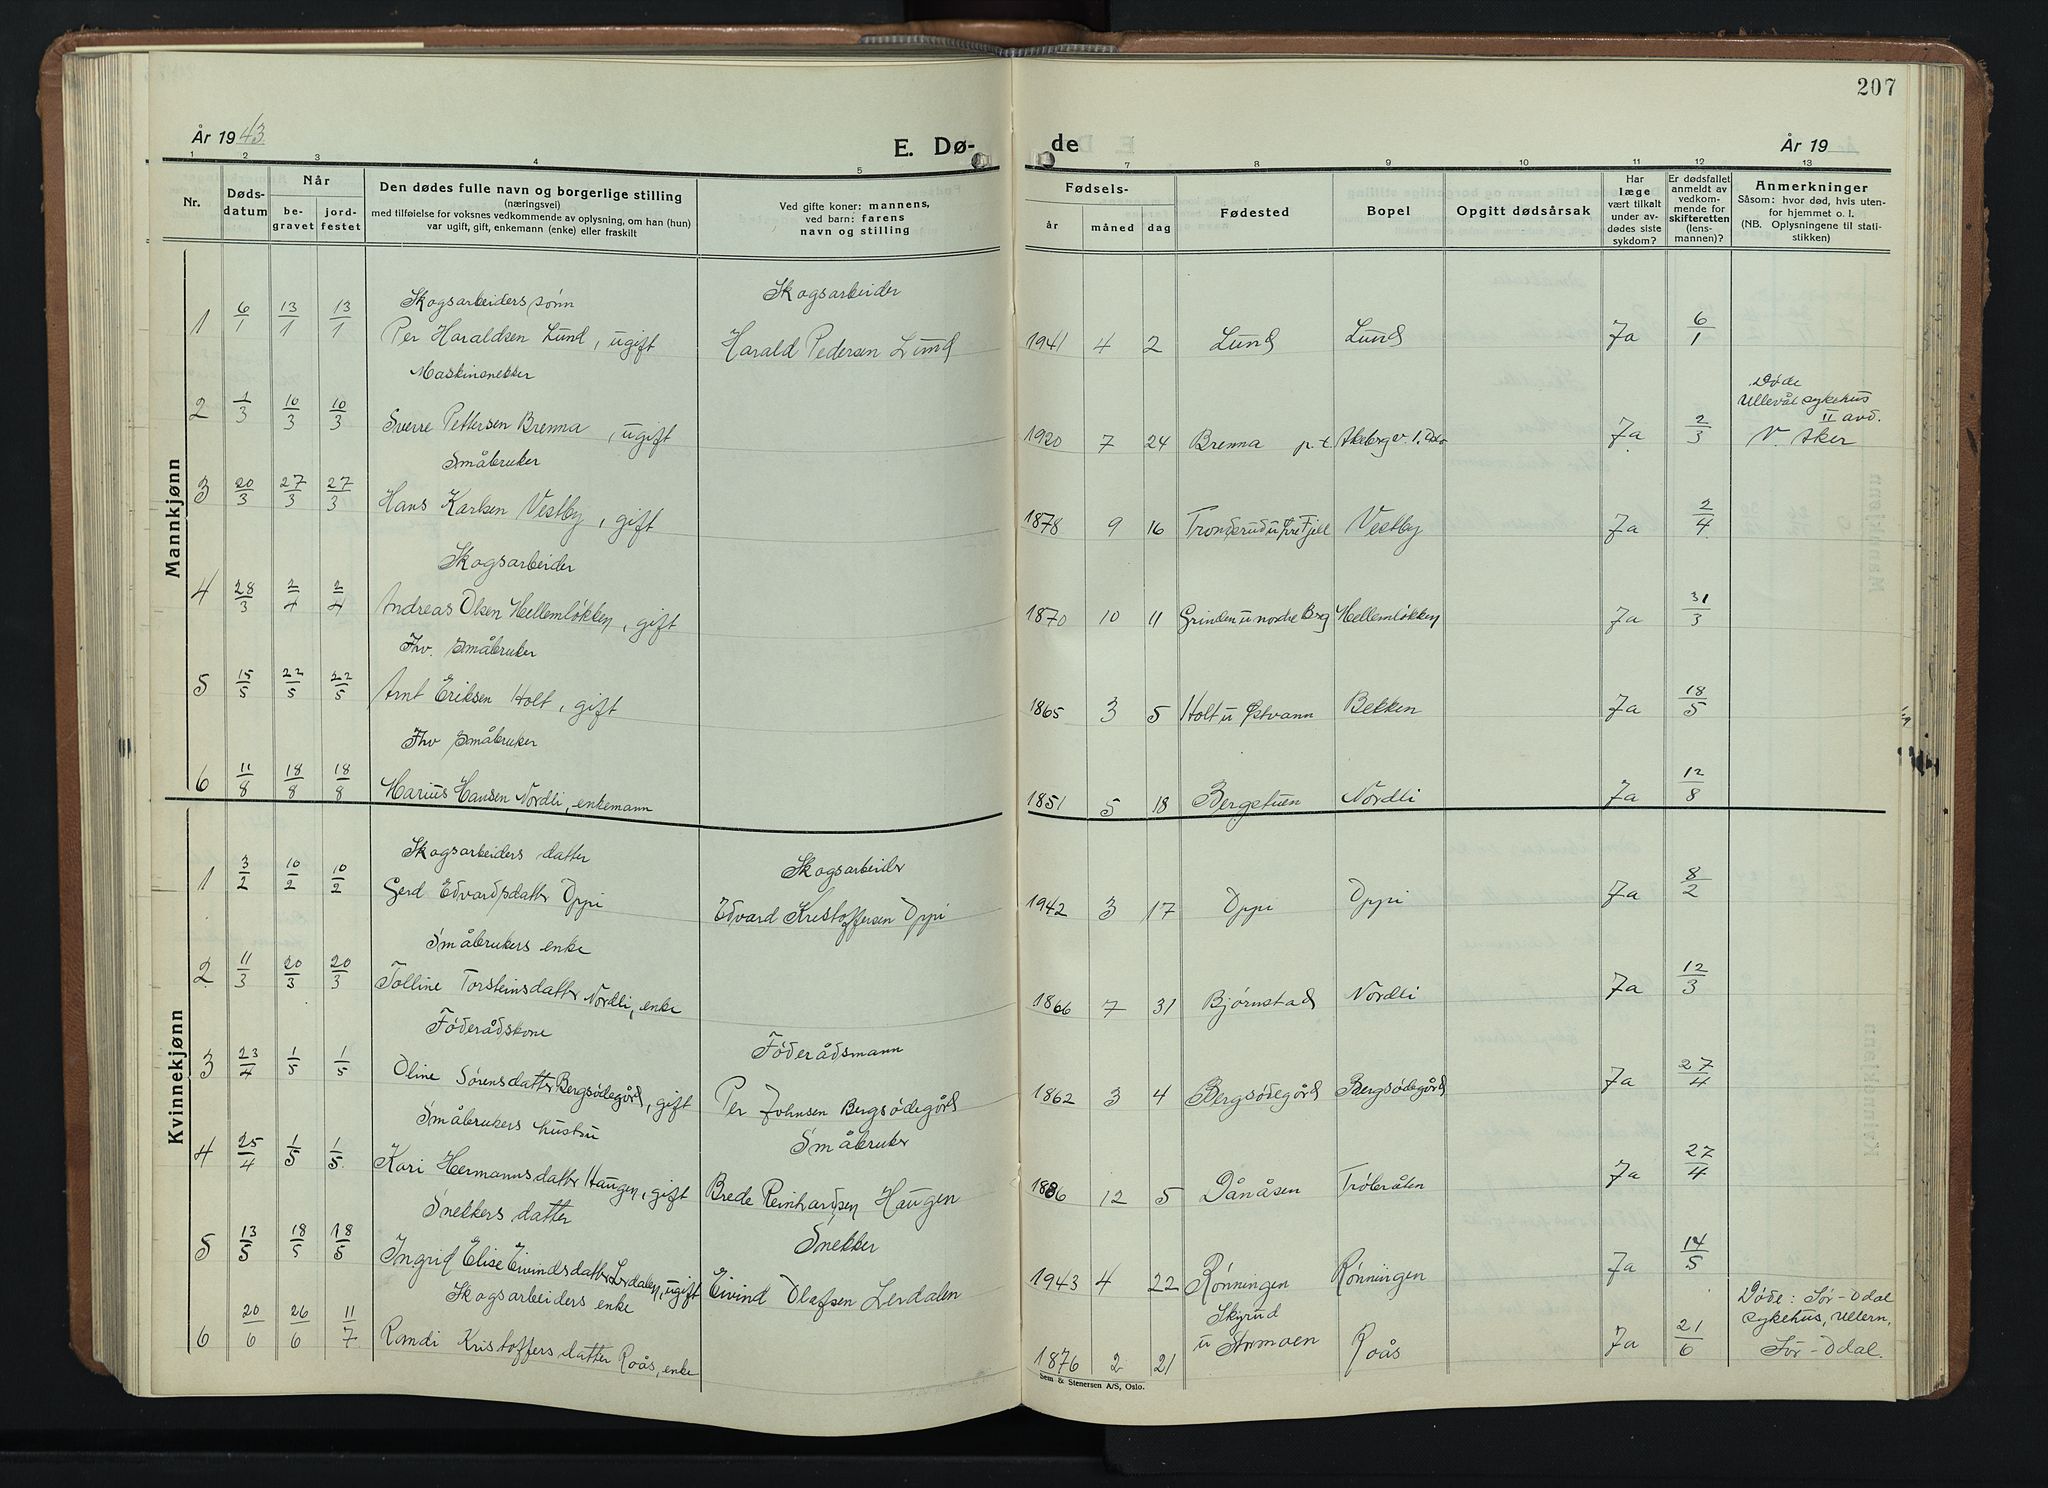 207
År 1943
E. Dø-
de
År 19
1 2 3 4 5
7 8 9 10 11 12 13
Nr.
Dødsdatum
Når
begravet
jordfestet
Den dødes fulle navn og borgerlige stilling
(næringsvei)
med tilføielse for voksnes vedkommende av oplysning, om han (hun)
var ugift, gift, enkemann (enke) eller fraskilt
Ved gifte koner: mannens,
ved barn: farens
navn og stilling
Fødsels-
år måned dag
Fødested
Bopel
Opgitt dødsårsak
Har
læge
vært tilkalt
under av-
dødes siste
sykdom?
Er dødsfallet
anmeldt av
vedkom-
mende for
skifteretten
(lens-
mannen)?
Anmerkninger
Såsom: hvor død, hvis uten-
for hjemmet o. l.
(NB. Oplysningene til stati-
stikken)
Mannkjønn
Skogsarbeiders sønn Skogsarbeider
1 6/1 13/1 13/1 Per Haraldsen Lund, ugift Harald Pedersen Lund 1941 4 2 Lund Lund Ja 6/1
Maskinsnekker Døde
Ullevål sykehus
II avd.
2 1/3 10/3 10/3 Sverre Pettersen Brenna, ugift 1920 7 24 Brenna p.t. Akebergv. 1. Oslo Ja 2/3 V. Aker
Småbruker
3 20/3 27/3 27/3 Hans Karlsen Vestby, gift 1878 9 16 Tronderud u Øvre Fjell Vestby Ja 2/4
Skogsarbeider
4 28/3 2/4 2/4 Andreas Olsen Hellemløkken, gift 1870 10 11 Grinden u nordre Berg Hellemløkken Ja 31/3
Fhv. Småbruker
5 15/5 22/5 22/5 Arnt Eriksen Holt, gift 1865 3 5 Holt u Østvann Bekken Ja 18/5
Fhv Småbruker
6 11/8 18/8 18/8 Marius Hansen Nordli, enkemann 1851 5 18 Bergstuen Nordli Ja 12/8
Kvinnekjønn
Skogsarbeiders datter Skogsarbeider
1 3/2 10/2 10/2 Gerd Edvardsdatter Oppi Edvard Kristoffersen Oppi 1942 3 17 Oppi Oppi Ja 8/2
Småbrukers enke
2 11/3 20/3 20/3 Tolline Torsteinsdatter Nordli, enke 1866 7 31 Bjørnstad Nordli Ja 12/3
Føderådskone Føderådsmann
3 23/4 1/5 1/5 Oline Sørensdatter Bergsødegård, gift Per Johnsen Bergsødegård 1862 3 4 Bergsødegård Bergsødegård Ja 27/4
Småbrukers hustru Småbruker
4 25/4 1/5 1/5 Kari Hermannsdatter Haugen, gift Brede Reinhardsen Haugen 1886 12 5 Dånåsen Trøbråten Ja 27/4
Snekkers datter Snekker
5 13/5 18/5 18/5 Ingrid Elise Eivindsdatter Lerdalen, ugift Eivind Olafsen Lerdalen 1943 4 22 Rønningen Rønningen Ja 14/5
Skogsarbeiders enke Skyrud Døde: Sør-Odal
sykehus, Ullern,
6 20/6 26/6 11/7 Randi Kristoffersdatter Roås, enke 1876 2 21 u Stormoen Roås Ja 21/6 Sør-Odal.
Sem & Stenersen A/S, Oslo.